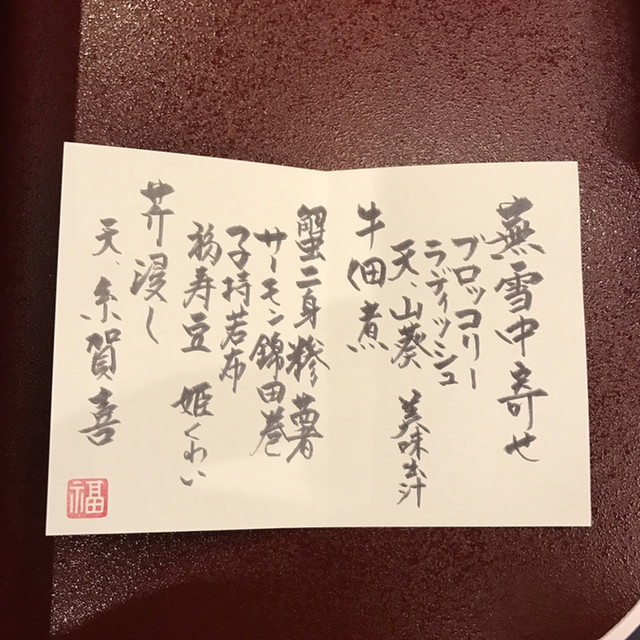 蕪雪中寄せ
ブロッコリー
ラディッシュ
天、山葵 美味出汁
牛佃煮
蟹二身糝薯
サーモン錦田巻
子持若布
福寿豆 姫くわい
芹浸し
天、糸賀喜
福